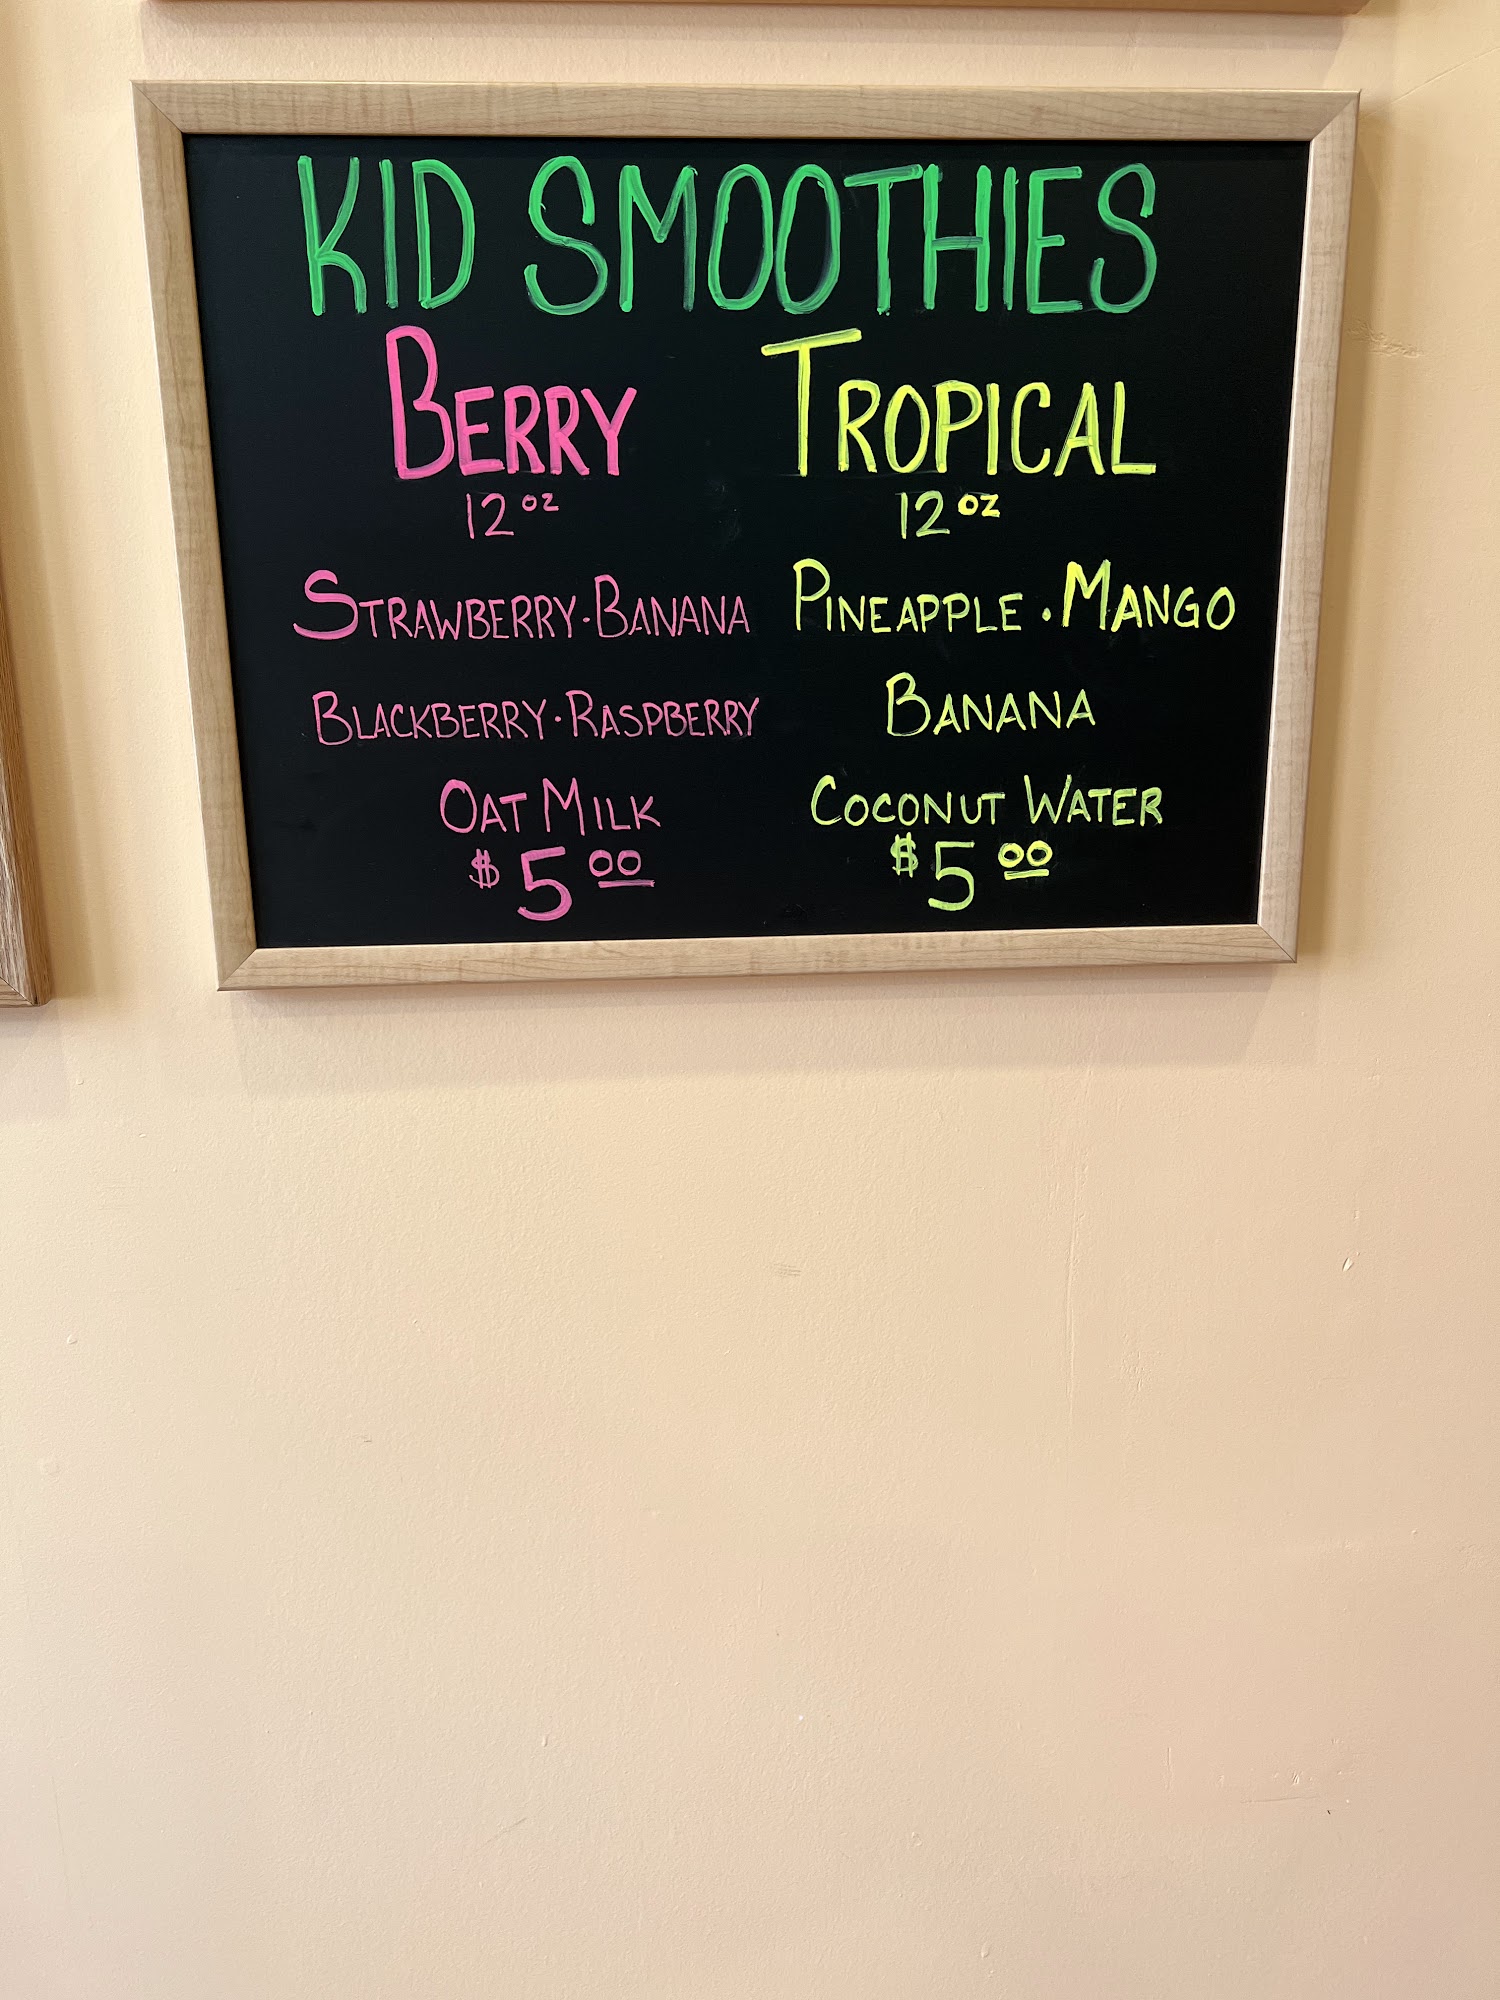 KID SMOOTHIES
BERRY
12 oz
STRAWBERRY · BANANA
BLACKBERRY · RASPBERRY
OAT MILK
$5.00
TROPICAL
12 oz
PINEAPPLE · MANGO
BANANA
COCONUT WATER
$5.00